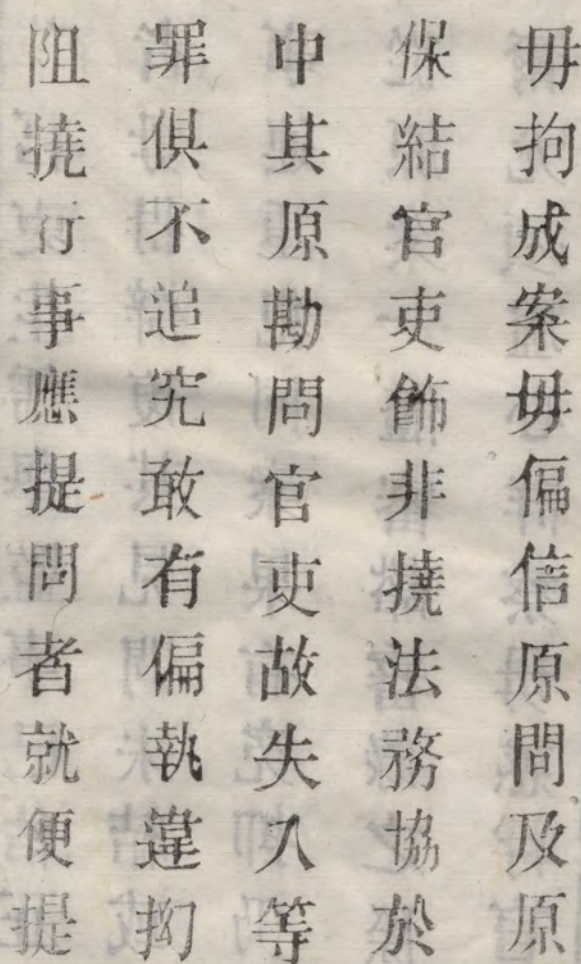 毋拘成案毋偏信原問及原
保結官吏飾非撓法務協於
中其原勘問官吏故失入等
罪俱不追究敢有偏執違拗
阻撓行事應提問者就便提